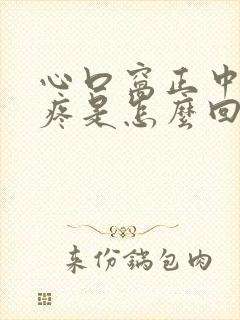 心口窩正中
疼是怎麼回
来份鍋包肉